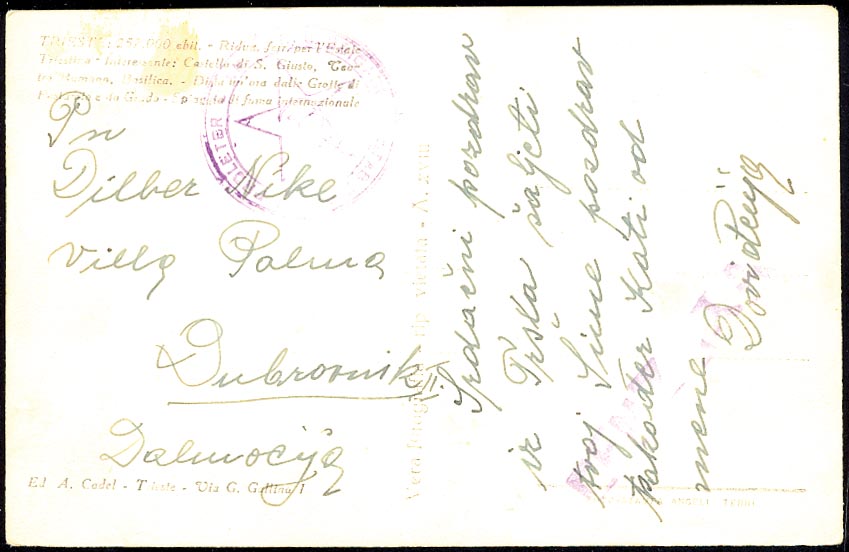 TRIESTE: 257.000 abit. - Ridua. ferr. per l'Estate
Triestina - Interessante: Castello di S. Giusto, Tea-
tro Romano, Basilica. - Di un'ora dalle Grotte di
e da Grado - Spiaggia di fama internazionale
Pn
Dilber Nike
Villa Palma
Dubrovnik II.
Dalmacija
Ed. A. Codel - Trieste - Via G. Gallina 1
Vera fotografia tip victoria - A. XVIII
Srdačni pozdrav
iz Trsta šaljeti
tvoj Sime pozdrav
također Kati od
mene
Doviđenja
ANGELI, TERNI